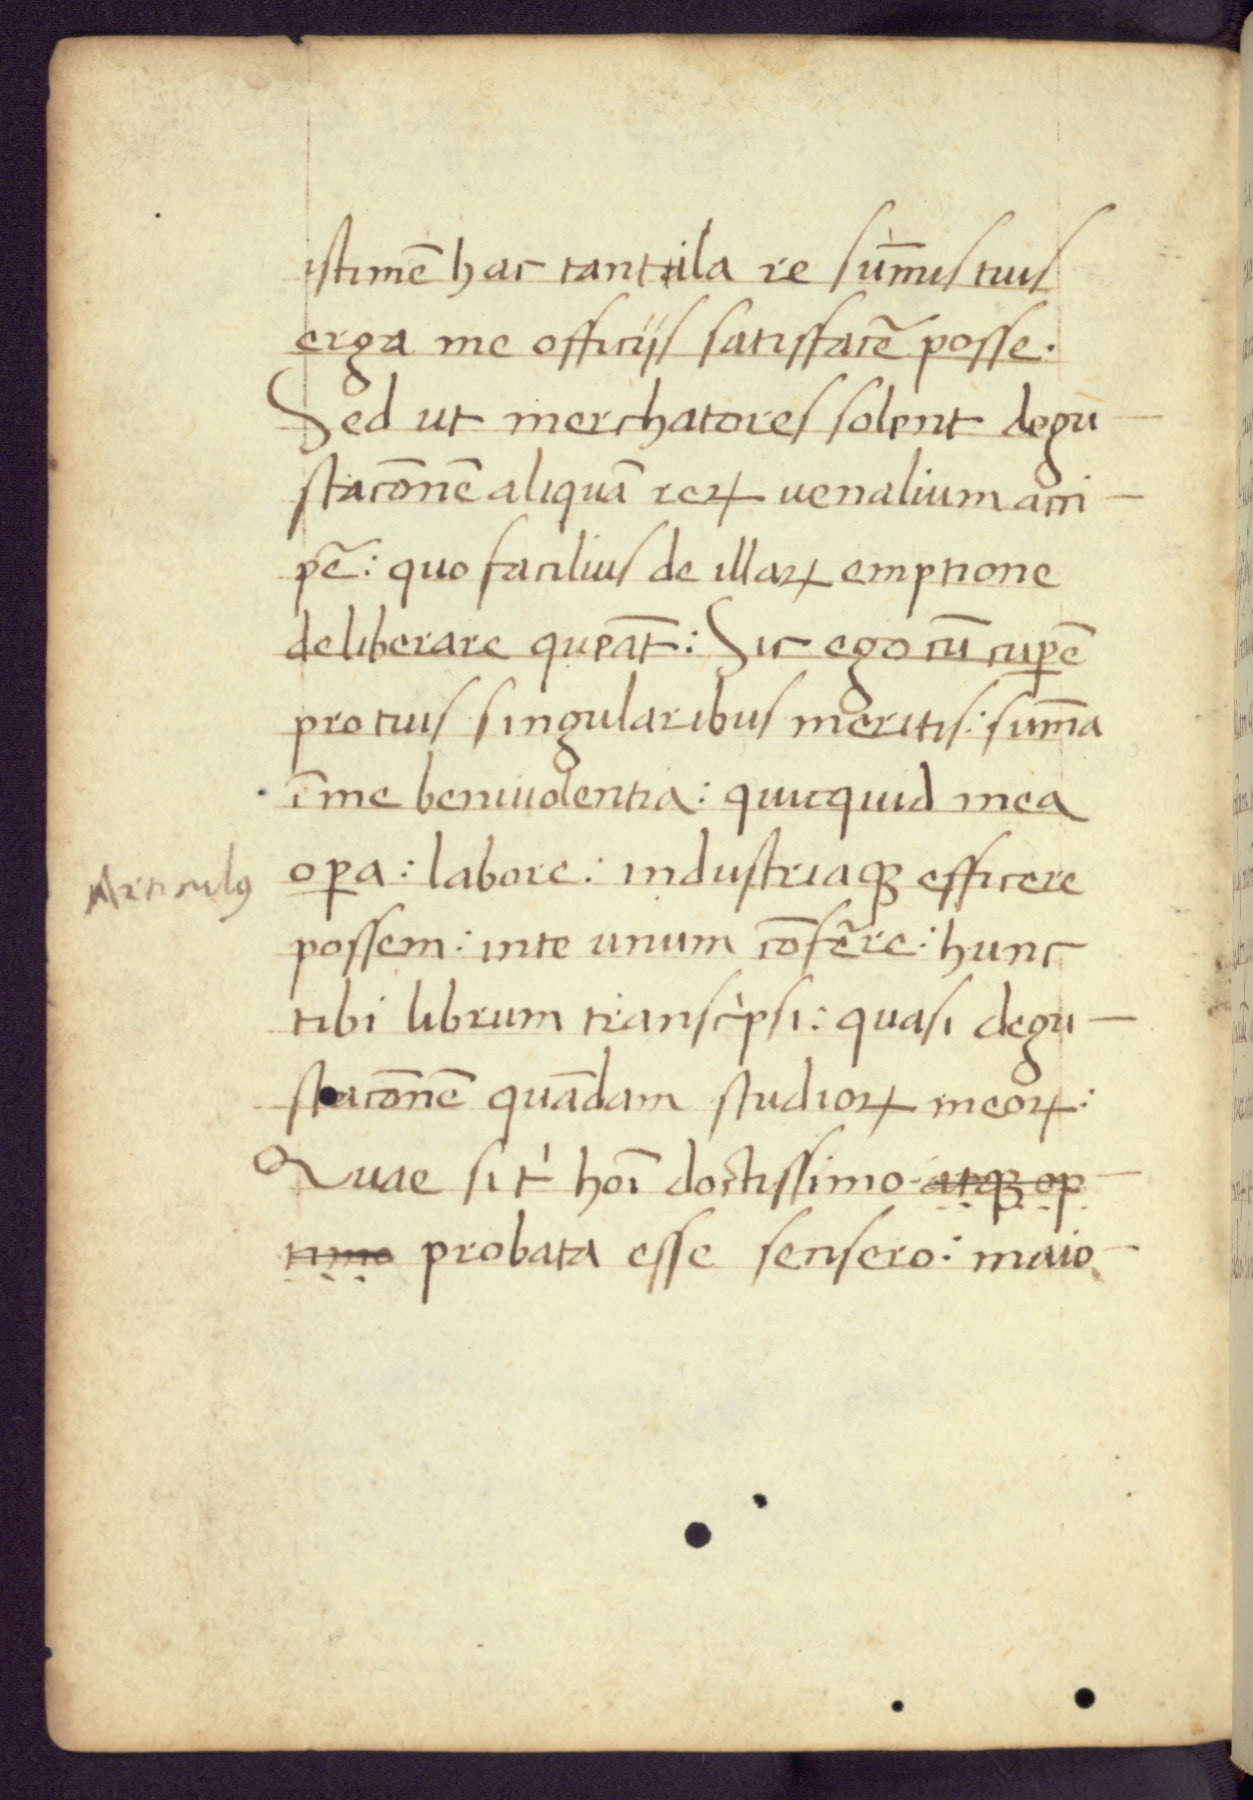 istimē hac tantula re sūmis tuis
erga me officijs satisfacē posse.
Sed ut merchatores solent degu-
stacōnē aliquā reꝝ uenalium acci-
pē: quo facilius de illaꝝ emptione
deliberare queāt: Sic ego cū cupē
pro tuis singularibus meritis: sum̄a
ī me beniuolentia: quicquid mea
Articulꝯ
oꝑa: labore: industriaqꝫ efficere
possem: inte unum cōfēre: hunc
tibi librum transcͥpsi: quasi degu-
stacōnē quādam studioꝝ meoꝝ:
Quae si tͥ hoī doctissimo atqꝫ op-
timo probata esse sensero: maio-